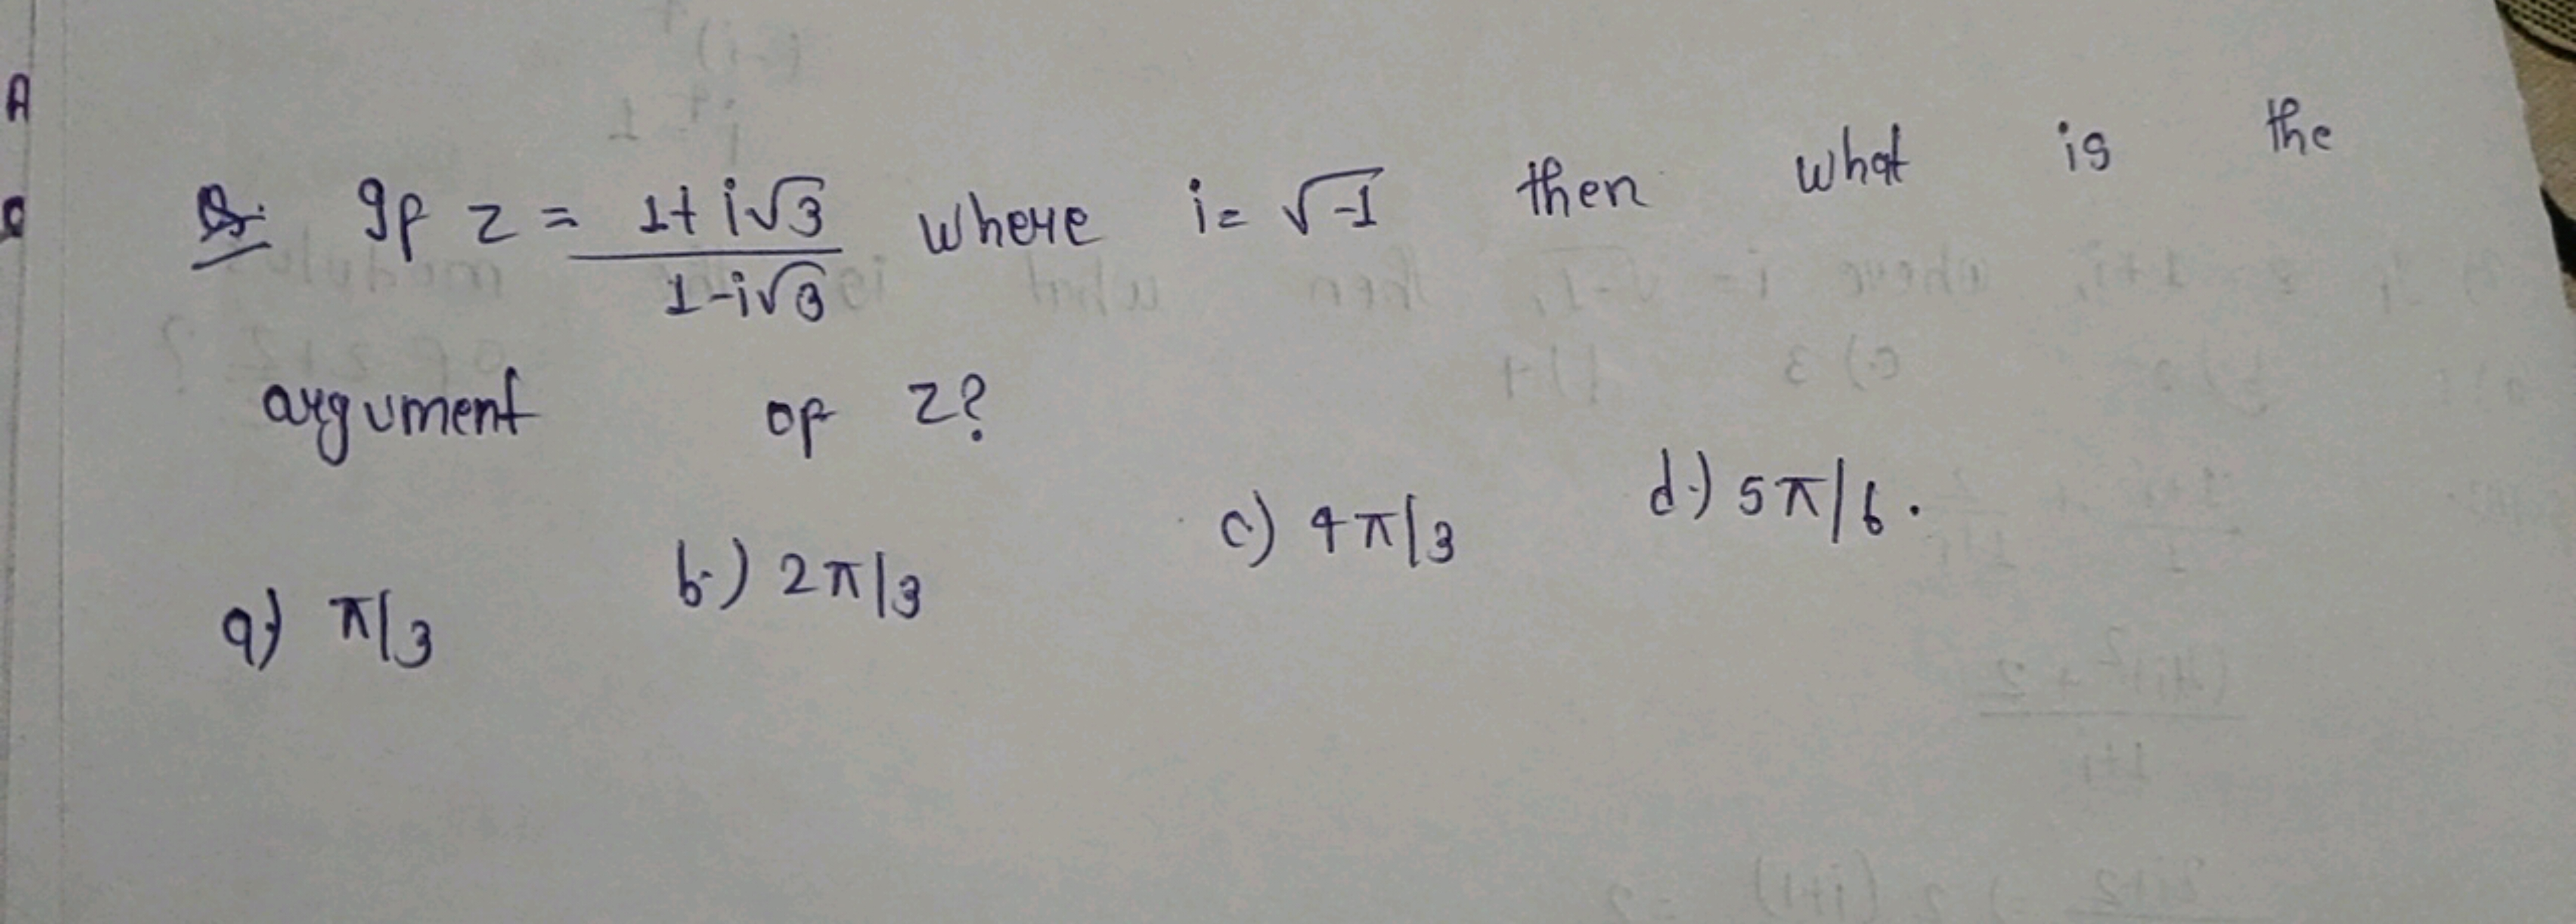 Q. If z = 1+i√3 / 1-i√3 where i = √-1 then what is the
argument of z?
a) π/3 b.) 2π/3 c) 4π/3 d.) 5π/6.